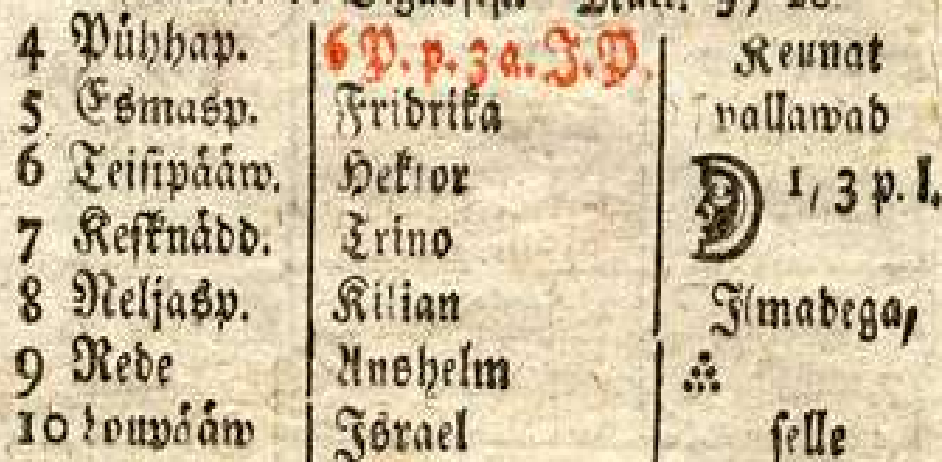 4 Pühhap. 6 P. p. 3 a. J. P. Keunat
5 Esmasp. Fridrika vallawad
6 Teisipääw. Hektor 1, 3 p. l.
7 Kesknädd. Trino
8 Neljasp. Kilian Ilmadega,
9 Rede Anshelm
10 Loupääw Israel selle